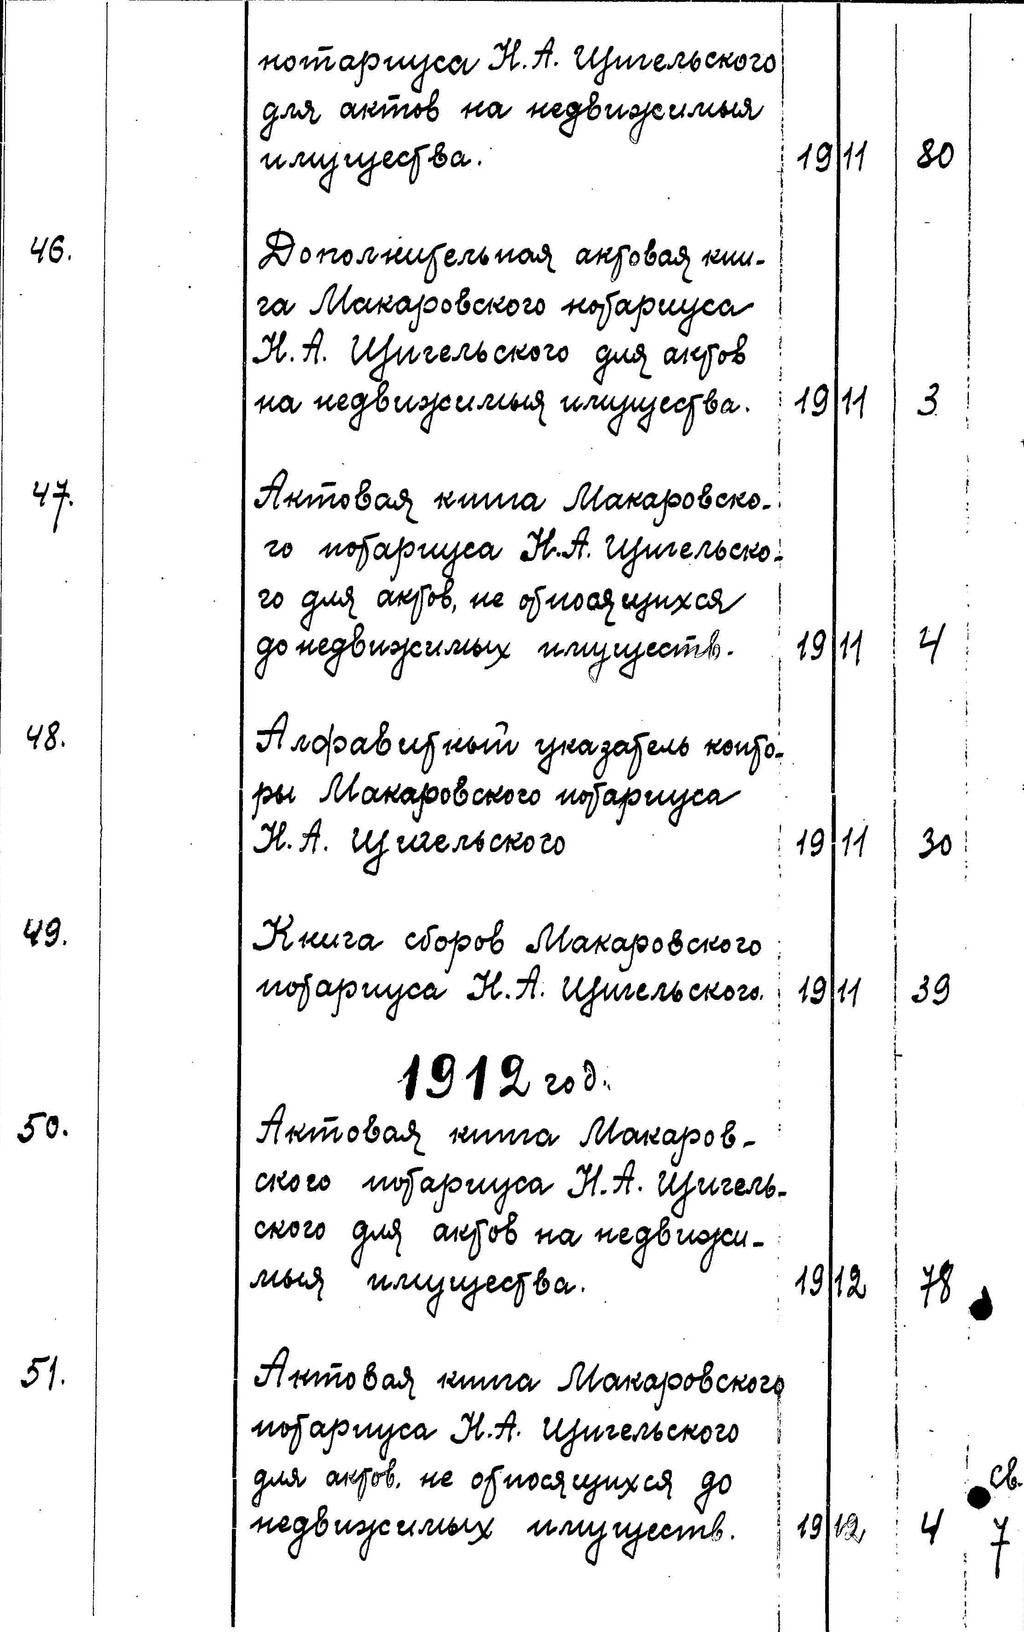 нотариуса Н.А. Щигельского
для актов на недвижимыя
имущества. 1911 80
46. Дополнительная актовая кни-
га Макаровского нотариуса
Н.А. Щигельского для актов
на недвижимыя имущества. 1911 3
47. Актовая книга Макаровско-
го нотариуса Н.А. Щигельско-
го для актов, не относящихся
до недвижимых имуществ. 1911 4
48. Алфавитный указатель конто-
ры Макаровского нотариуса
Н.А. Щигельского 1911 30
49. Книга сборов Макаровского
нотариуса Н.А. Щигельского. 1911 39
1912 год.
50. Актовая книга Макаров-
ского нотариуса Н.А. Щигель-
ского для актов на недвижи-
мыя имущества. 1912 78
51. Актовая книга Макаровского
нотариуса Н.А. Щигельского
для актов, не относящихся до св.
недвижимых имуществ. 1912 4 7